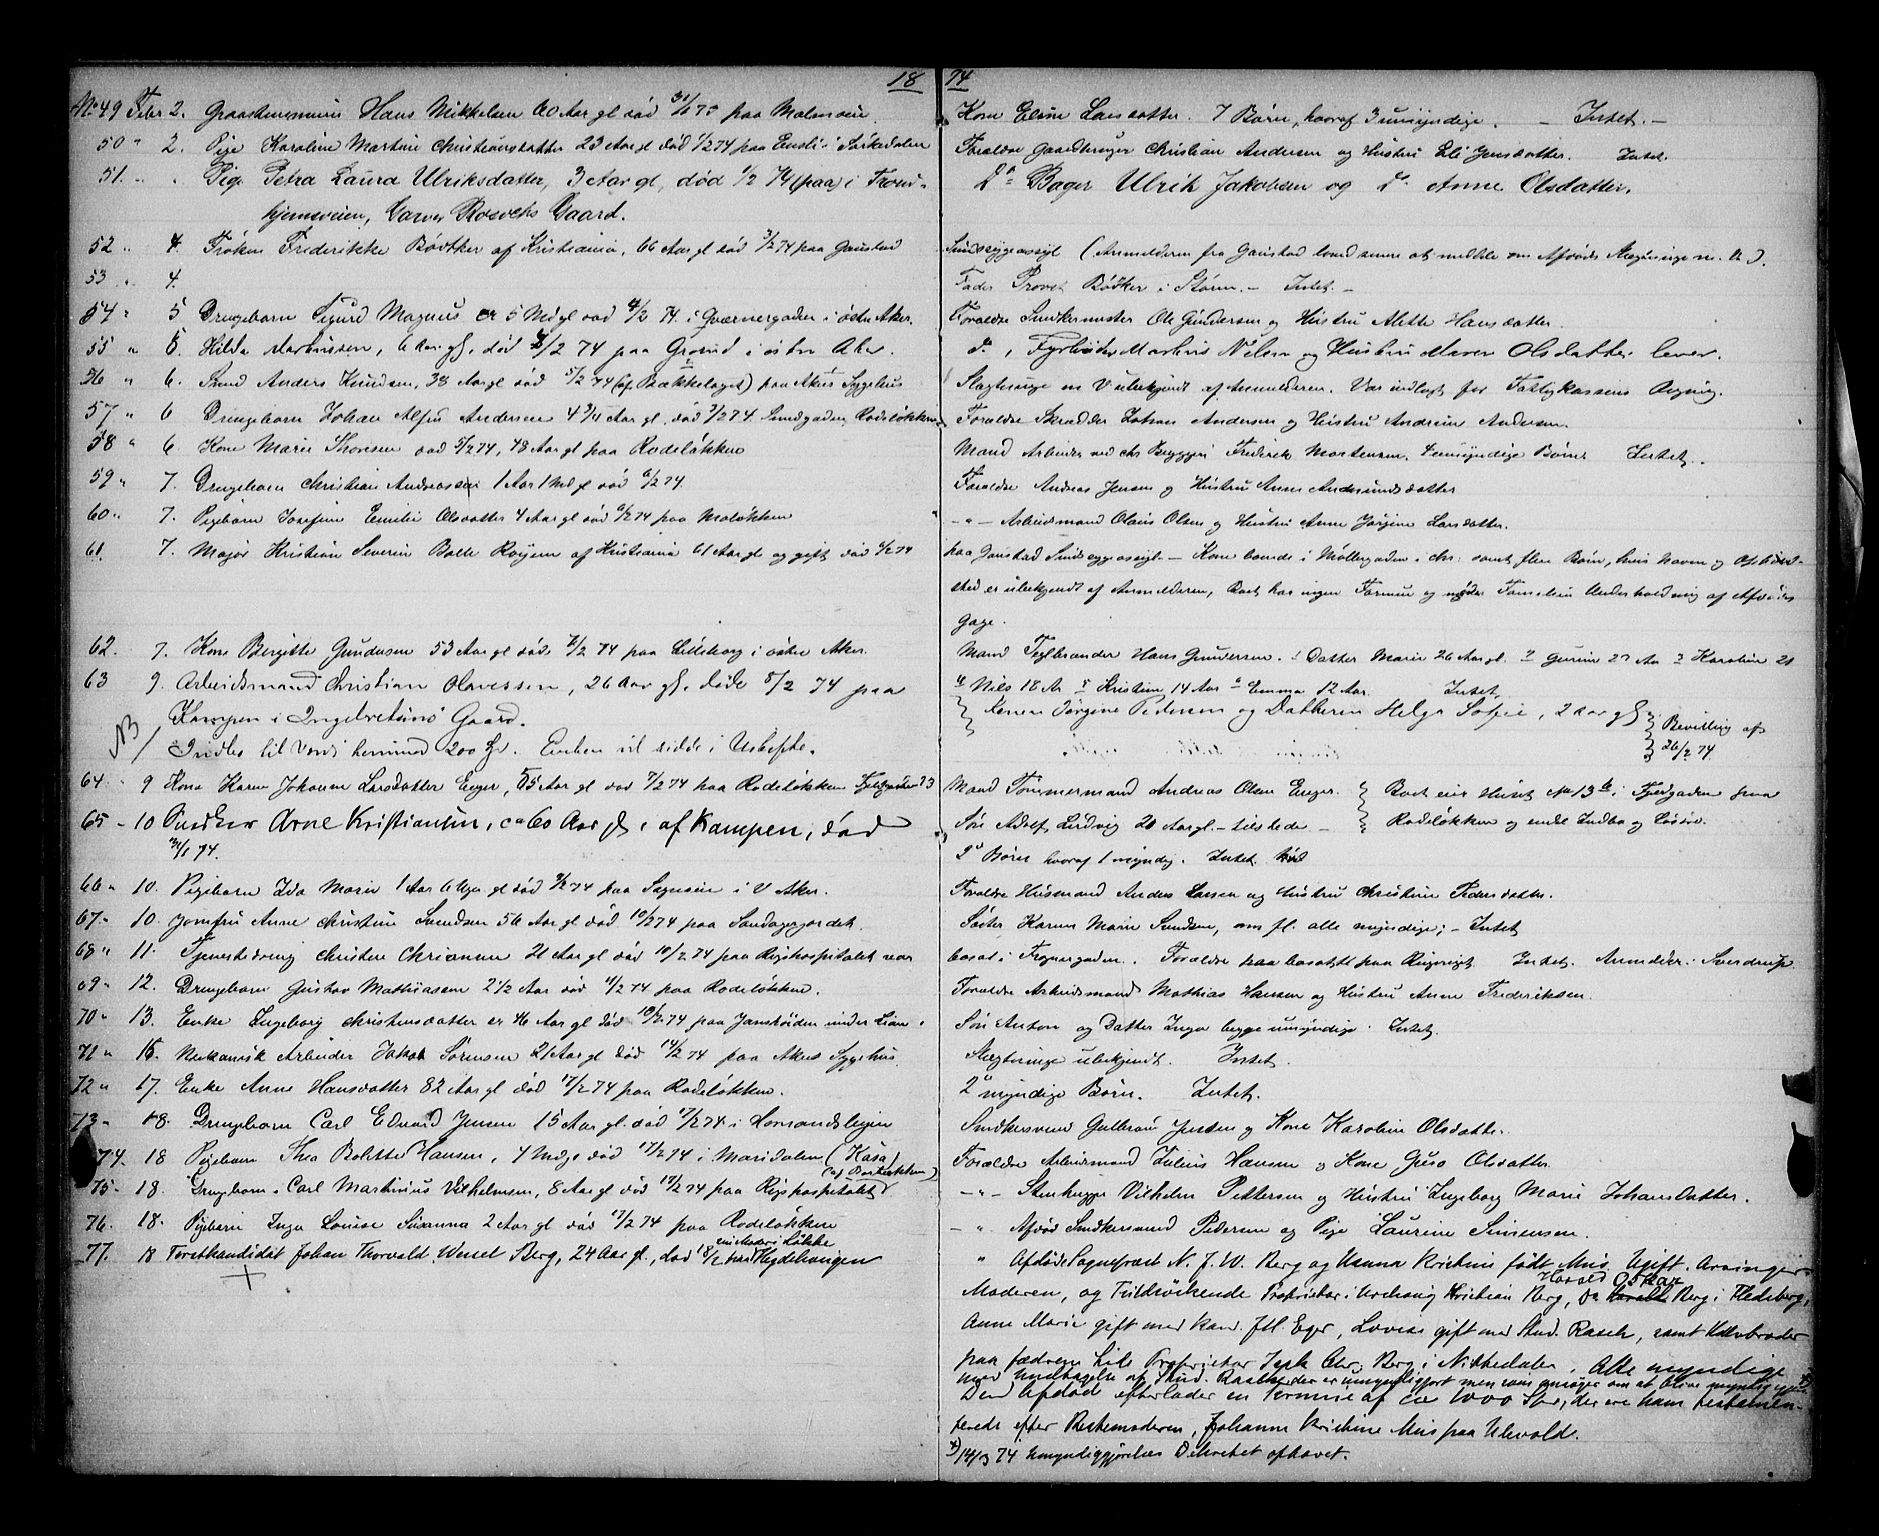 18 74
No 49 Febr 2. Hans Mikkelsen 60 Aar gl død 31/1 75 paa Malmøen. Kone Eline Larsdatter. 7 Børn, hvoraf 3 umyndige. — Intet. —
50 " 2. Pige Karoline Martine Christiansdatter 23 Aar gl død 1/2 74 paa i Sørkedalen Forældre Gaardbruger Christian Andersen og Hustru Eli Jensdatter. Intet.
51. " " Pige Petra Laura Ulriksdatter, 3 Aar gl, død 1/2 74 (paa) i Trond- Do Bager Ulrik Jakobsen og Do Anne Olsdatter.
hjemsveien, Garver Gaard.
52 " 4. Frøken Frederikke Bødtker af Kristiania, 66 Aar gl død 3/2 74 paa Gaustad Sindssygeasyl (Anmelderen fra Gaustad kunde at meddele om Afdødes Slægtninge m. V.).
53 " 4. Fader Provst Bødtker i Stören. — Intet. —
54 " 5 Drengebarn Sigurd Magnus 5 Mdgl død 4/2 74 i Qværnergaden i östre Aker. Forældre Snedkermester Ole Gundersen og Hustru Alette Hansdatter.
55 " 5. Hilda Martinsen, 6 Aar gl, död 3/2 74 paa Grorud i östre Aker. Do, Fyrböder Martin Nilsen og Hustru Maren Olsdatter lever.
56 " 6. Smed Anders Knudsen, 38 Aar gl död 5/2 74 (af Bækkelaget) paa Akers Sygehus Slægtninge er ubekjendt af Anmelderen. Var indlagt for Fattigkassens Regning.
57 " 6 Drengebarn Johan Alfred Andersen 4 3/4 Aar gl, død 3/2 74. Rodeløkken Forældre Skrædder Johan Andersen og Hustru Andrine Andersen.
58 " 6 Kone Marie Thoresen død 5/2 74, 48 Aar gl paa Rodeløkken Mand Arbeider ved Bryggeri Frederik Mortensen. umyndige Børn Intet.
59 " 7. Drengebarn Christian Andreassen 1 Aar 1 Mdgl død 6/2 74. Forældre Andreas Jensen og Hustru Anne Andersdatter
60 " 7. Pigebarn Josefine Emilie Olsdatter 4 Aar gl død 6/2 74 paa — " — Arbeidsmand Olaus Olsen og Hustru Anne Jørgine Larsdatter.
61 7. Major Kristian Severin Balle af Kristiania 61 Aar gl og gift død 4/2 74 paa Gaustad Sindssygeasyl — Kone boende i Møllergaden i Chr: samt flere Børn, hvis Navn og Opholds-
sted er ubekjendt af Anmelderen, Boet har ingen Formue og Familien Underholdning af Afdødes
Gage.
62. 7. Kone Bergitte Gundersen 53 Aar gl død 6/2 74 paa Lilleborg i östre Aker. Mand Teglbrænder Hans Gundersen. 1 Datter Marie 26 Aar gl. 2 23 Aar 3 Karoline 21
63 9. Arbeidsmand Christian Olavessen, 26 Aar gl, döde 8/2 74 paa 4 Nils 18 Ar 5 Kristine 14 Aar 6 Emma 12 Aar. Intet.
Kampen i Ingebretsens Gaard. Konen Jørgine Pedersen og Datteren Helga Sofie, 2 Aar gl Bevilling af
NB / Indbo til Værdi henimod 200 Spd. Enken vil sidde i Uskifte. 26/2 74.
64 " 9 Kone Karen Johanne Larsdatter Enger, 55 Aar gl død 7/2 74 paa Rodeløkken Fjeldgaden 13 Mand Tømmermand Andreas Olsen Enger. Boet eier Huset No 13 b i Fjeldgaden paa
65 - 10 Snedker Arne Kristiansen, ca 60 Aar gl, af Kampen, död Søn Adolf Ludvig 20 Aar gl. — tilstede — Rodeløkken og endel Indbo og Løsøre.
31/1 74. 2 Børn hvoraf 1 myndig. Intet
66 " 10. Pigebarn Ida Marie 1 Aar 6 Uger gl død 9/2 74 paa Sognsveien i V Aker. Forældre Husmand Anders Larsen og Hustru Christine Pedersdatter.
67 " 10. Jomfru Anne Christine Svendsen 56 Aar gl død 10/2 74 paa Sandagergjordet. Søster Karen Marie Svendsen, m. fl. alle myndige; — Intet
68 " 11. Tjenestedreng Christen 21 Aar gl død 10/2 74 paa Rigshospitalet var bosat i Frognergaden. Forældre bosatte paa Ringerige. Intet. Anmelder: Sverdrup.
69 " 12. Drengebarn Gustav Mathiasen 2 1/2 Aar död 11/2 74 paa Rodeløkken. Forældre Arbeidsmand Mathias Hansen og Hustru Anne Frederiksen.
70 " 13. Enke Ingeborg Christensdatter er 46 Aar gl död 10/2 74 paa Jansbråten under Lian. Søn Anton og Datter Inga begge umyndige. Intet.
71 " 15. Mekanisk Arbeider Jakob Sørensen 21 Aar gl död 14/2 74 paa Akers Sygehus. Slægtninge ubekjendt. Intet.
72 " 17. Enke Anne Hansdatter 82 Aar gl død 17/2 74 paa Rodeløkken. 2 myndige Børn. Intet.
73 " 18. Drengebarn Carl Edvard Jensen 15 Aar gl. død 17/2 74 i Homansbyen Snedkersvend Gulbran Jensen og Kone Karoline Olsdatter.
74. 18 Pigebarn Thea Bolette Hansen, 4 Mdgl død 17/2 74 i Maridalen (Kasa) Forældre Arbeidsmand Julius Hansen og Kone Olsdatter.
75 - 18. Drengebarn Carl Martinius Vilhelmsen, 8 Aar gl død 17/2 74 paa Rigshospitalet — " — Stenhugger Vilhelm Pettersen og Hustru Ingeborg Marie Johansdatter.
76. 18. Pigebarn Inga Louise Susanna 2 Aar gl død 17/2 74 paa Rodeløkken — " Afdød Snedkersvend Pedersen og Pige Laurine Simensen.
77. 18 Forstkandidat Johan Thorvald Wessel Berg, 24 Aar gl., død 18/2 ved Hegdehaugen " Afdøde Sogneprest N. J. W. Berg og Hanna Kristine født Mus. Ugift. Arvinger:
Moderen, og Fuldsöskende Proprietær i Kristian Berg, Do Harald Oskar Berg i
Anne Marie gift med Kand. Eger, Lovise gift med Stud. Rasch, samt Halvbroder
paa fædrene Side Proprietær Chr. Berg i Nittedalen. Alle myndige
med Undtagelse af Stud. Rasch der er umyndiggjort men som ansøger om at blive myndig igjen
Den Afdöd efterlader en Formue af ca 1000 Spd, der ere ham testamen-
terede efter Bestemoderen, Johanne Kristine Mus paa Ulevold.
*) 14/3 74 Umyndiggjørelses Dekretet ophævet.